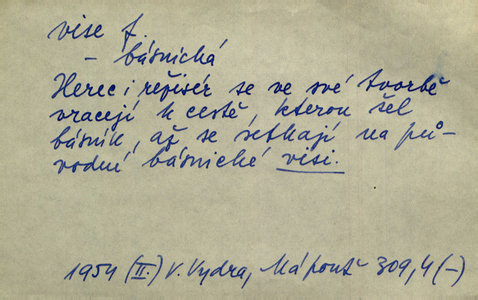 vise f.
– básnická
Herec i režisér se ve své tvorbě
vracejí k cestě, kterou šel
básník, až se setkají na pů-
vodní básnické visi.
1954 (II.) V. Vydra, Má pouť 309,4 (–)